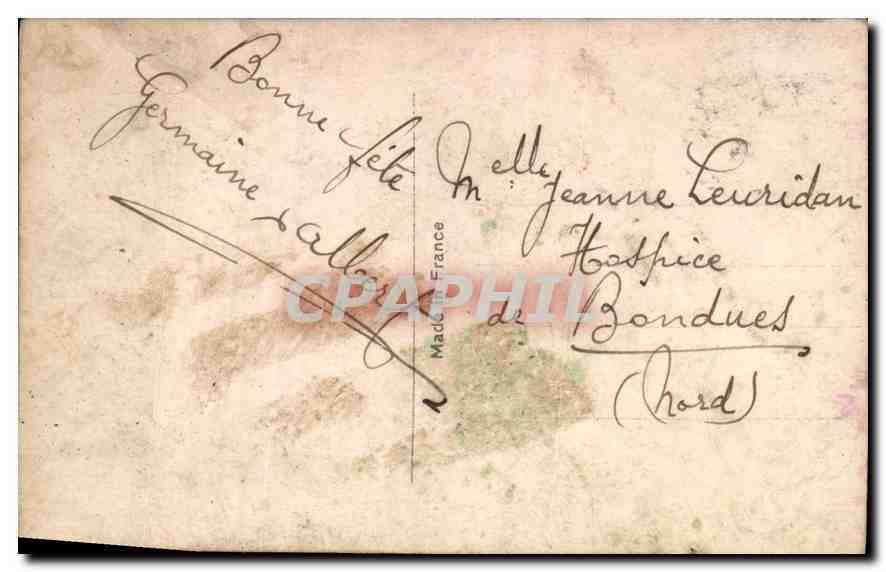 Bonne fête
Germaine & Albert
Made in France
Melle Jeanne Leuridan
Hospice
de Bondues
(Nord)
CPAPHIL